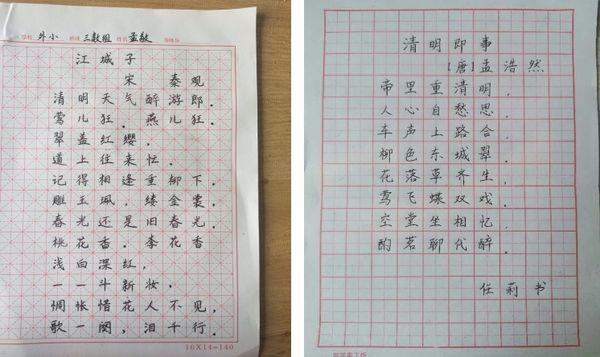 学校 外小 班级 三数组 姓名 孟敏
江城子
宋 秦观
清明天气醉游郎.
莺儿狂. 燕儿狂.
翠盖红缨,
道上往来忙.
记得相逢重柳下.
雕玉珮, 缕金裳.
春光还是旧春光.
桃花香. 李花香
浅白深红,
一一斗新妆.
惆怅惜花人不见,
歌一阕, 泪千行.
10X14=140
清明即事
【唐】孟浩然
帝里重清明,
人心自愁思.
车声上路合,
柳色东城翠.
花落草齐生,
莺飞蝶双戏.
空堂坐相忆,
酌茗聊代醉.
任莉书